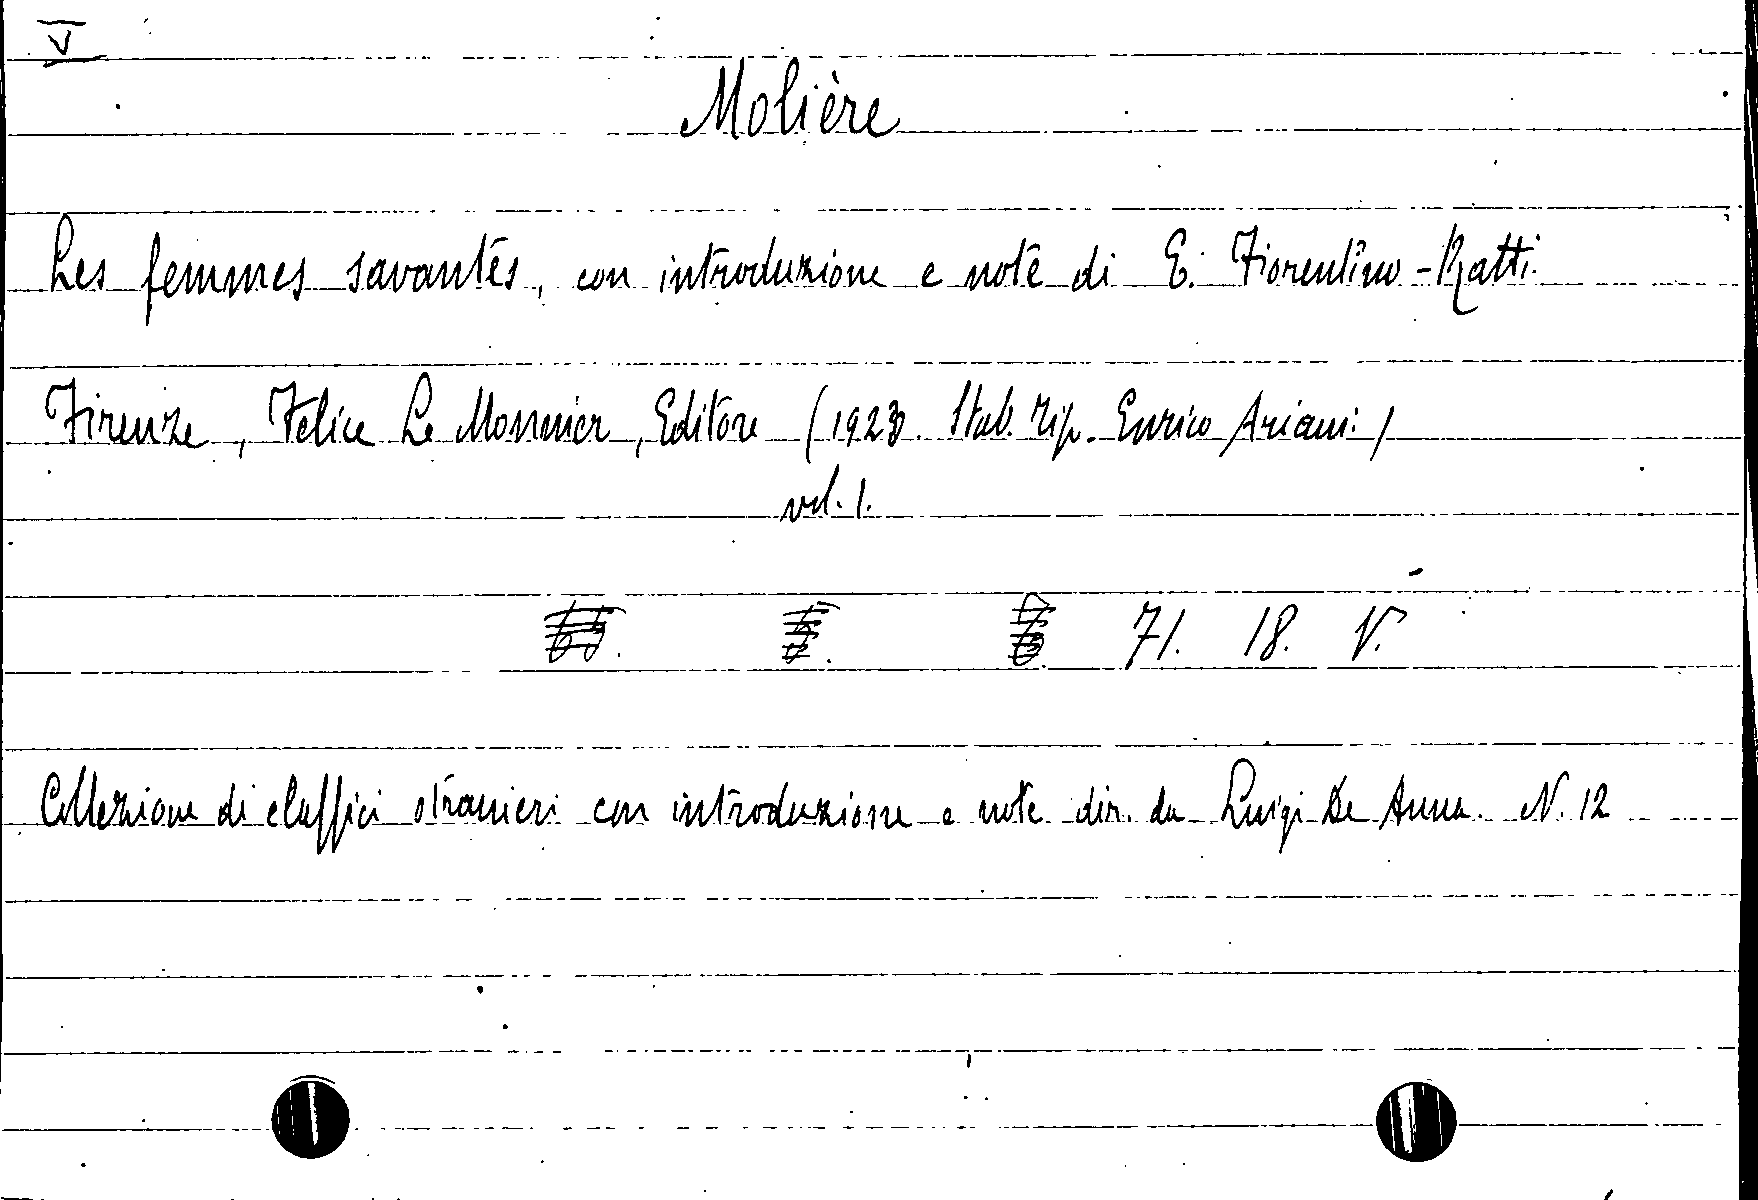 V
Molière
Les femmes savantes, con introduzione e note di E. Fiorentino-Ratti.
Firenze, Felice Le Monnier, Editore (1923. Stab. Tip. Enrico Ariani)
vol. 1.
71. 18. V.
Collezione di classici stranieri con introduzione e note dir. da Luigi De Anna. N. 12